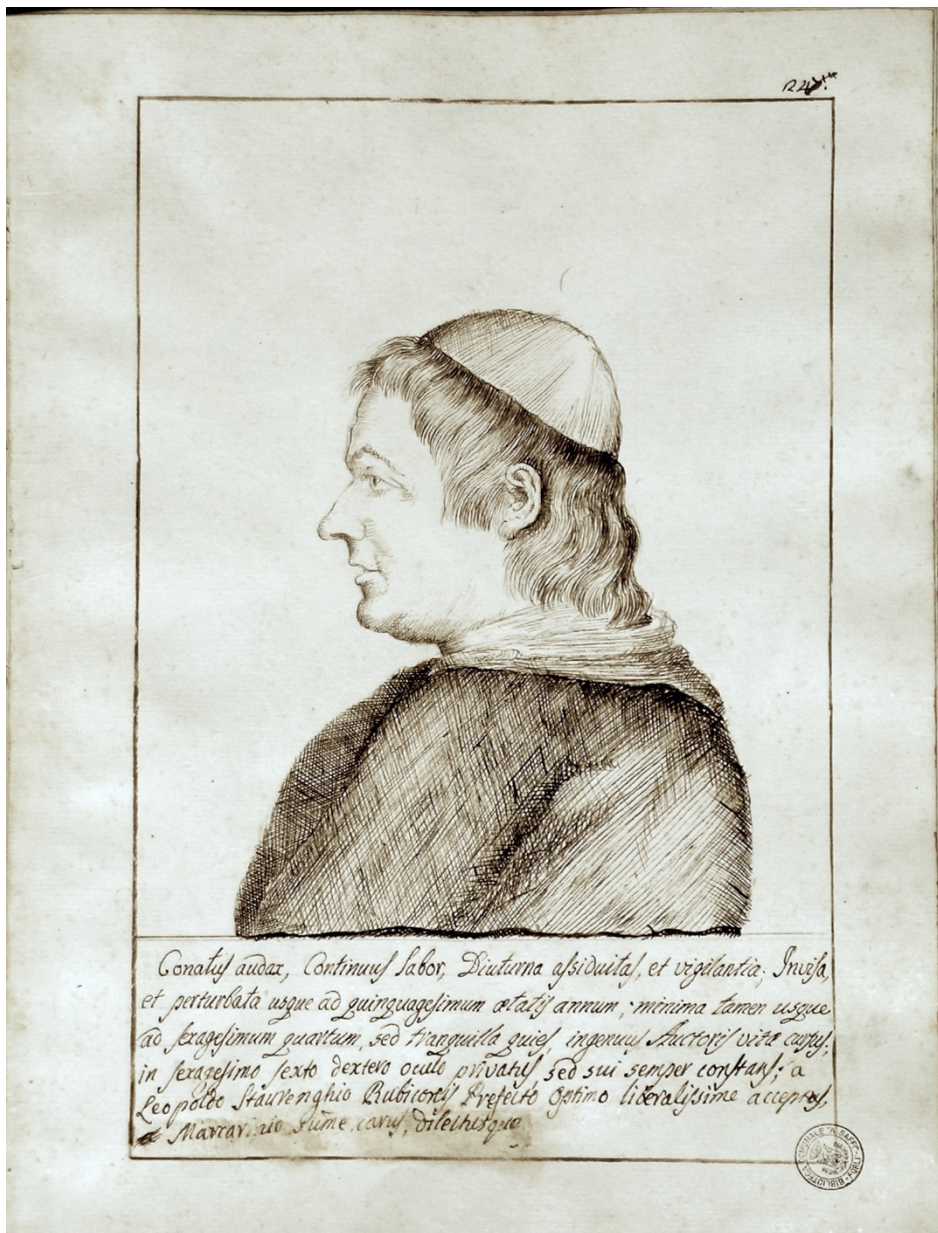 Conatus audax, Continuus labor, Diuturna assiduitas, et vigilantia; Invisa,
et perturbata usque ad quinquagesimum ætatis annum; minima tamen usque
ad sexagesimum quartum, sed tranquilla quies, ingenuus Auctoris vitæ cursus;
in sexagesimo sexto dextero oculo privatus sed sui semper constans; a
Leopoldo Staurenghio Rubicortis Prefecto Optimo liberalissime acceptus,
carus, dilectusque
BIBLIOTECA COMUNALE "A. SAFFI" FORLI